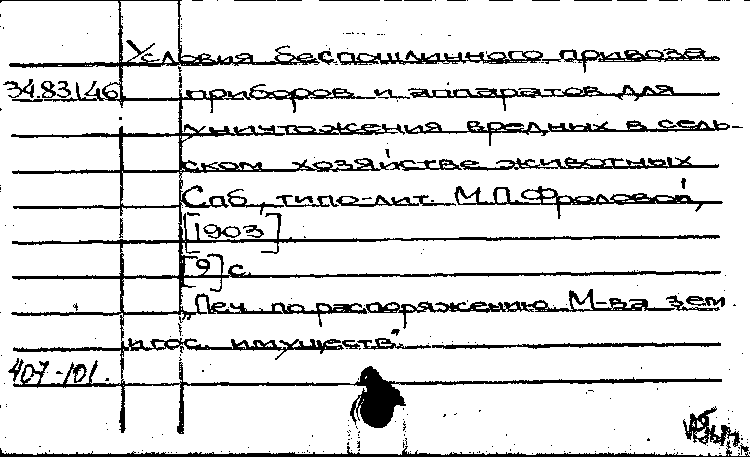 Условия беспошлинного привоза
34.83/46 приборов и аппаратов для
уничтожения вредных в сель-
ском хозяйстве животных
Спб, типо-лит. М.П.Фроловой,
[1903]
[9] с.
"Печ. по распоряжению М-ва зем.
и гос. имуществ".
407-101.